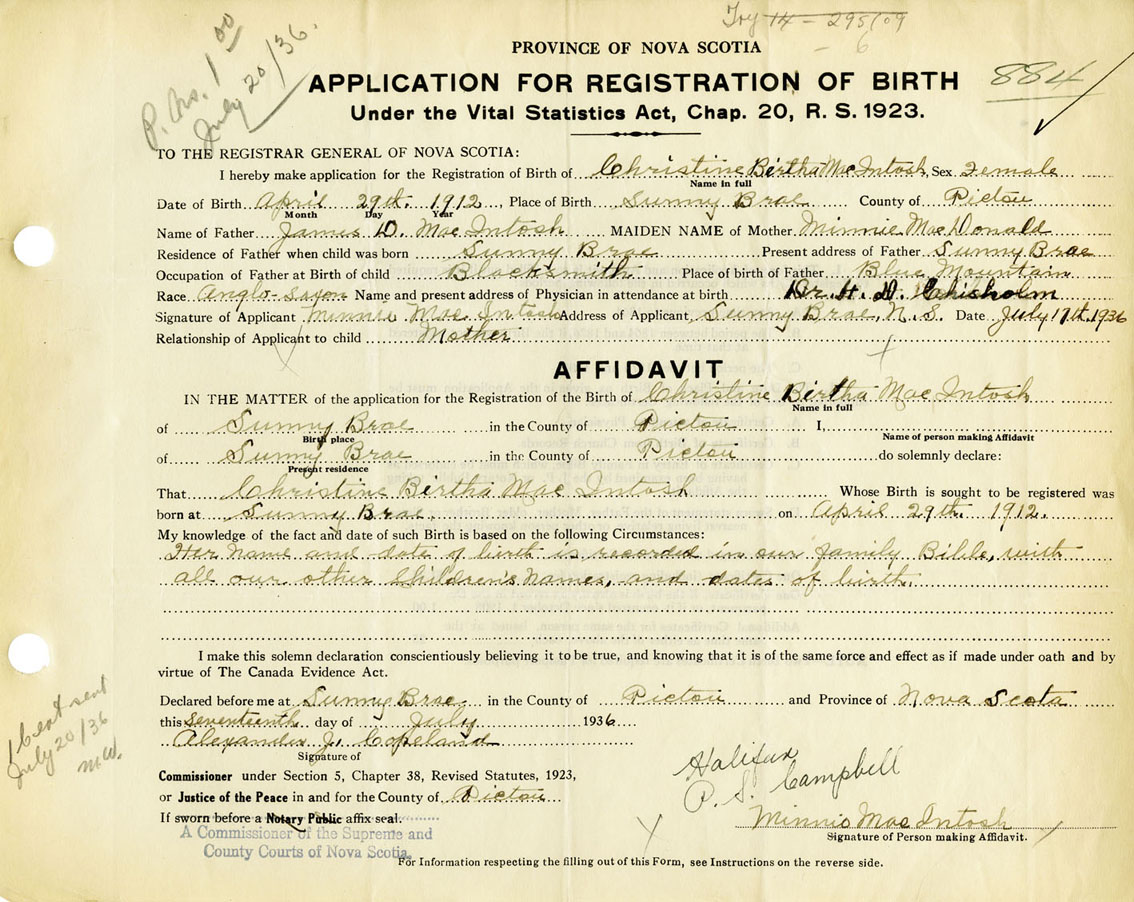 Try 14 - 295109
- 6
P. No. 1.00
July 20/36.
884
PROVINCE OF NOVA SCOTIA
APPLICATION FOR REGISTRATION OF BIRTH
Under the Vital Statistics Act, Chap. 20, R. S. 1923.
TO THE REGISTRAR GENERAL OF NOVA SCOTIA:
I hereby make application for the Registration of Birth of Christine Birtha Mac Intosh, Sex Female
Name in full
Date of Birth April 29th. 1912, Place of Birth Sunny Brae County of Pictou
Month Day Year
Name of Father James D. Mac Intosh MAIDEN NAME of Mother Minnie Mac Donald
Residence of Father when child was born Sunny Brae Present address of Father Sunny Brae
Occupation of Father at Birth of child Blacksmith Place of birth of Father Blue Mountain
Race Anglo-Saxon Name and present address of Physician in attendance at birth Dr. H. D. Chisholm
Signature of Applicant Minnie Mac Intosh Address of Applicant Sunny Brae, N. S. Date July 17th. 1936
Relationship of Applicant to child Mother
AFFIDAVIT
IN THE MATTER of the application for the Registration of the Birth of Christine Birtha Mac Intosh
Name in full
of Sunny Brae in the County of Pictou I,
Birth place Name of person making Affidavit
of Sunny Brae in the County of Pictou do solemnly declare:
Present residence
That Christine Birtha Mac Intosh Whose Birth is sought to be registered was
born at Sunny Brae. on April 29th. 1912.
My knowledge of the fact and date of such Birth is based on the following Circumstances:
Her name and date of birth is recorded in our family Bible, with
all our other Children's names, and dates of birth.
I make this solemn declaration conscientiously believing it to be true, and knowing that it is of the same force and effect as if made under oath and by
virtue of The Canada Evidence Act.
Declared before me at Sunny Brae, in the County of Pictou and Province of Nova Scota
this Seventeenth day of July 1936
Alexander J. Copeland
Signature of
Commissioner under Section 5, Chapter 38, Revised Statutes, 1923,
or Justice of the Peace in and for the County of Pictou
If sworn before a Notary Public affix seal.
A Commissioner of the Supreme and
County Courts of Nova Scotia.
Halifax
P. S. Campbell
Minnie Mac Intosh
Signature of Person making Affidavit.
For Information respecting the filling out of this Form, see Instructions on the reverse side.
1 sent
July 20/36